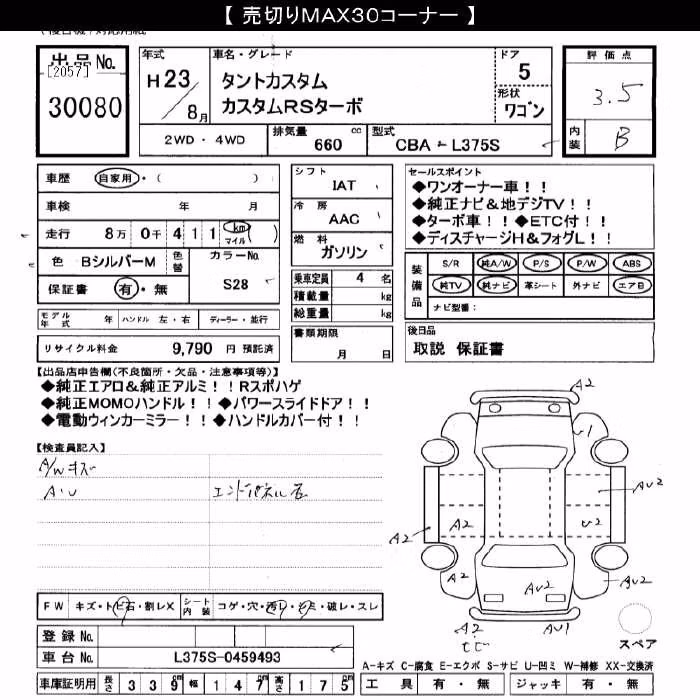 【 売切りMAX30コーナー 】
出品No.
[2057]
30080
年式
H23/8月
車名・グレード
タントカスタム
カスタムRSターボ
ドア
5
形状
ワゴン
評価点
3.5
内装
B
2WD・4WD
排気量
660 cc
型式
CBA - L375S
車歴 自家用・( )
車検 年 月
走行 8万 0千 4 1 1 ( km マイル )
色 BシルバーM 色替
カラーNo.
S28
保証書 有・無
モデル年式 年 ハンドル 左・右 ディーラー・並行
リサイクル料金 9,790 円 預託済
シフト
IAT
冷房
AAC
燃料
ガソリン
乗車定員 4 名
積載量 kg
総重量 kg
書類期限
月 日
セールスポイント
◆ワンオーナー車！！
◆純正ナビ＆地デジTV！！
◆ターボ車！！◆ETC付！！
◆ディスチャージH＆フォグL！！
装備品
S/R 純A/W P/S P/W ABS
純TV 純ナビ 革シート 外ナビ エアB
ナビ型番：
後日品
取説 保証書
【出品店申告欄(不良箇所・欠品・注意事項等)】
◆純正エアロ＆純正アルミ！！Rスポハゲ
◆純正MOMOハンドル！！◆パワースライドドア！！
◆電動ウィンカーミラー！！◆ハンドルカバー付！！
【検査員記入】
A/Wキズ
A・U
エンドパネル
FW キズ・トビ石・割レX
シート内装 コゲ・穴・汚レ・シミ・破レ・スレ
登録No.
車台No. L375S-0459493
車庫証明用 長さ 3 3 9 cm 幅 1 4 7 cm 高さ 1 7 5 cm
A2
U1
AU2
A2
A2
U2
A2
AU2
AU2
A2
AU1
スペア
A-キズ C-腐食 E-エクボ S-サビ U-凹ミ W-補修 XX-交換済
工具 有・無 ジャッキ 有・無